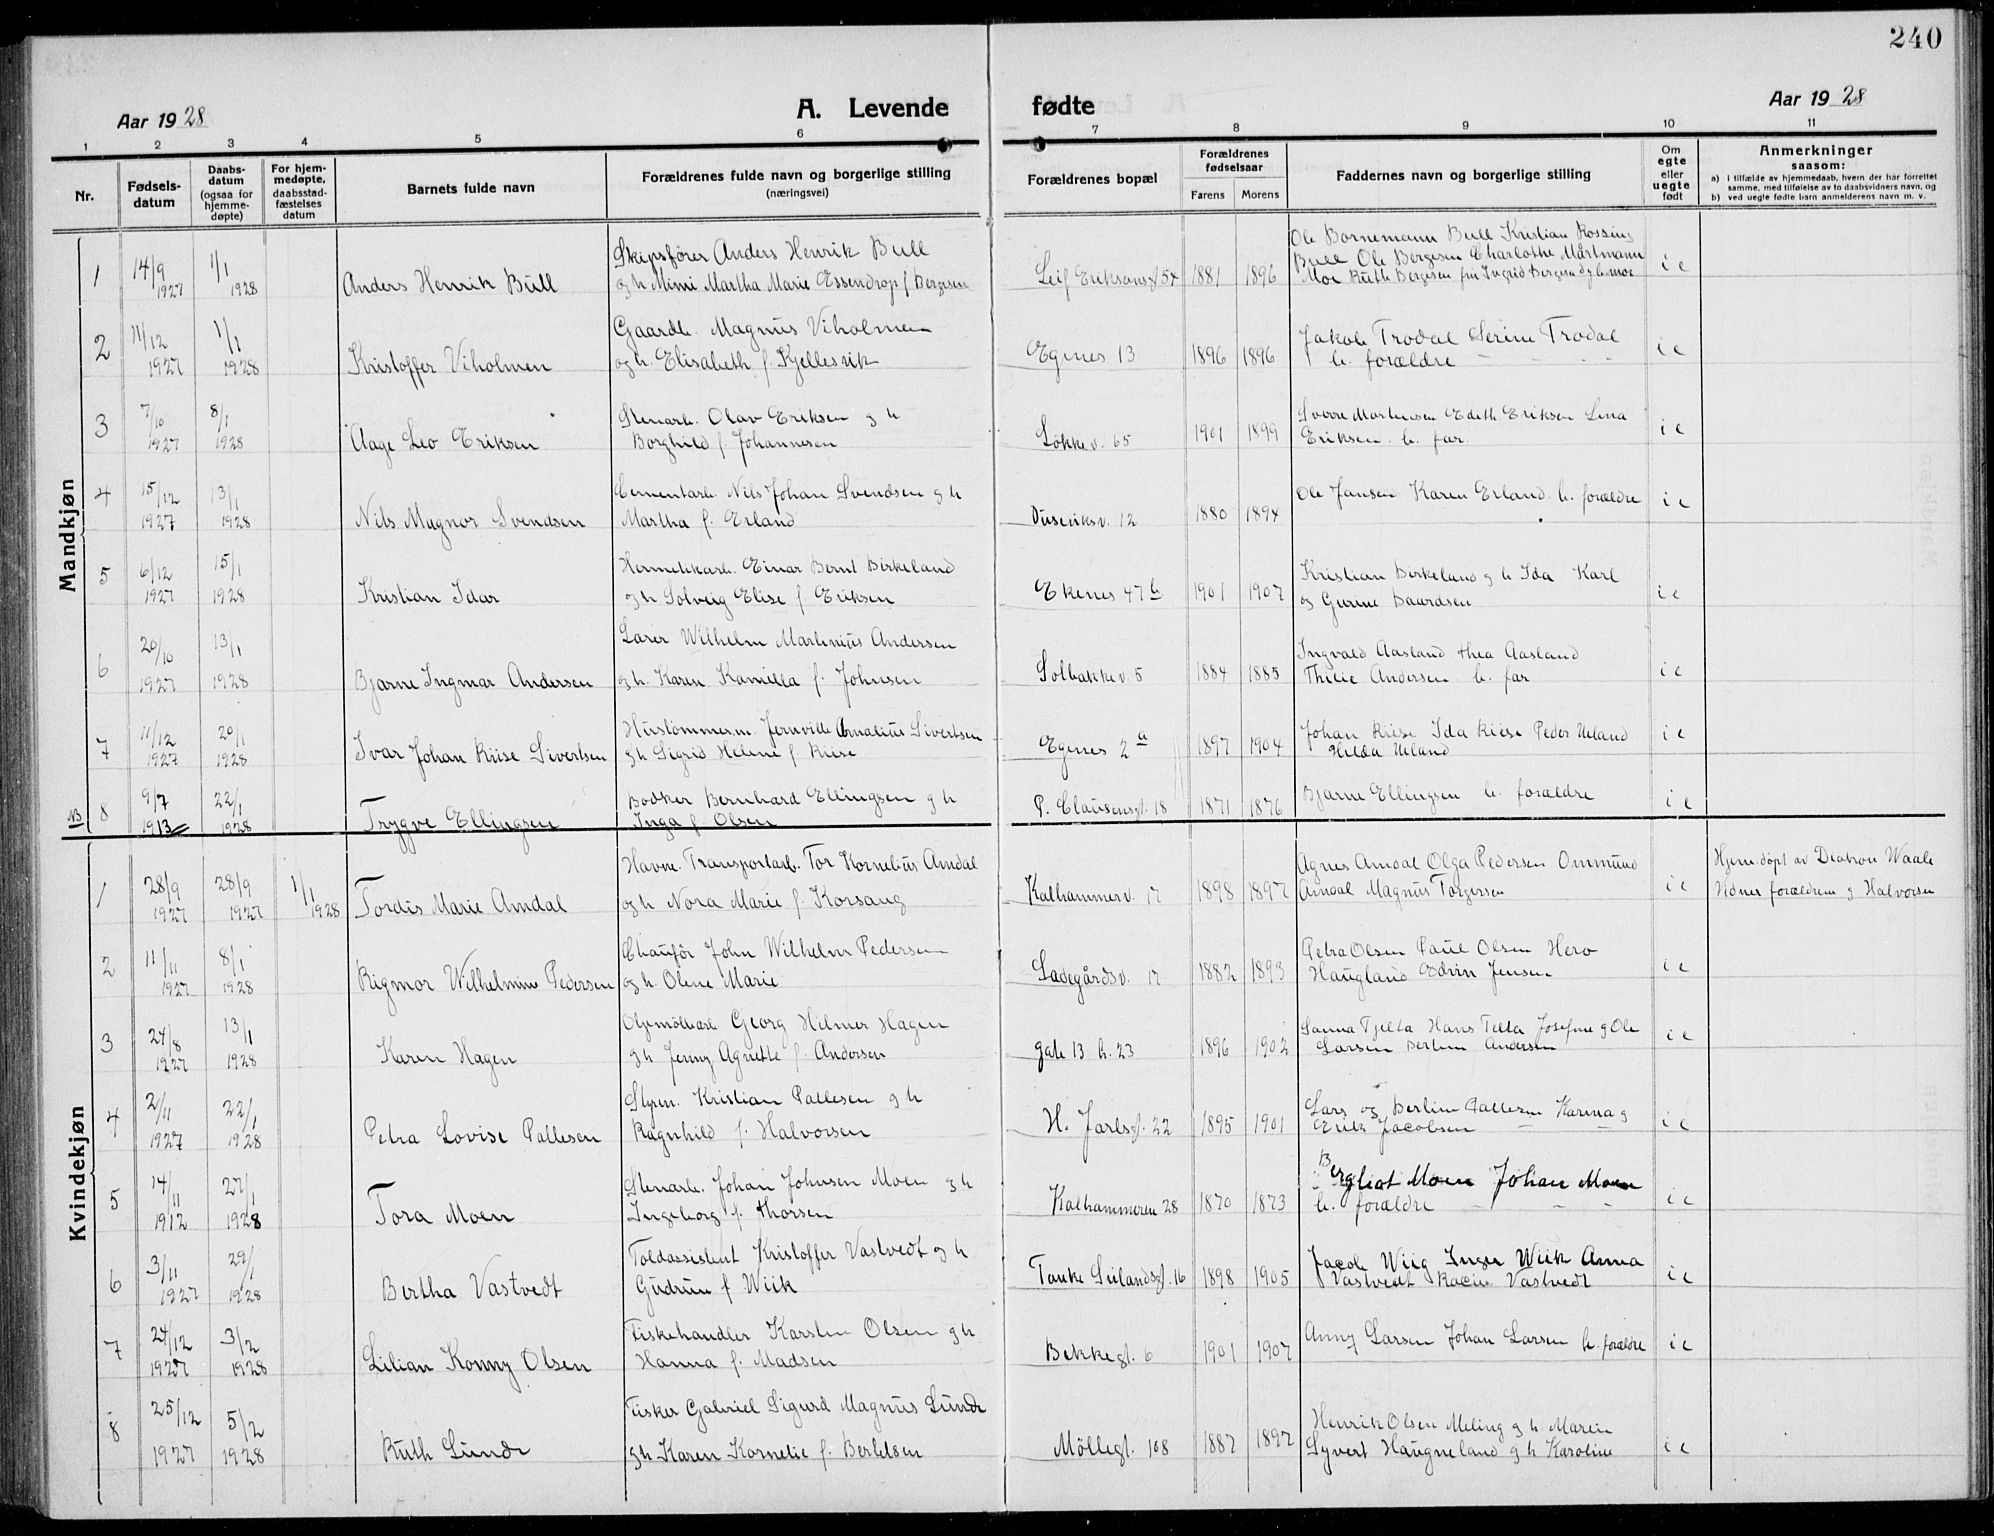 240
Aar 1928
A. Levende fødte
Aar 1928
1 2 3 4 5 6 7 8 9 10 11
Nr.
Fødsels-
datum
Daabs-
datum
(ogsaa for
hjemme-
døpte)
For hjem-
medøpte,
daabsstad-
fæstelses
datum
Barnets fulde navn
Forældrenes fulde navn og borgerlige stilling
(næringsvei)
Forældrenes bopæl
Forældrenes
fødselsaar
Farens Morens
Faddernes navn og borgerlige stilling
Om
egte
eller
uegte
født
Anmerkninger
saasom:
a) i tilfælde av hjemmedaab, hvem der har forrettet
samme, med tilføielse av to daabsvidners navn, og
b) ved uegte fødte barn anmelderens navn m. v.
Mandkjøn
1 14/9 1927 1/1 1928
Anders Henrik Bull
Skipsfører Anders Henrik Bull
og h Mimi Martha Marie Essendrop f Bergesen
Leif Eriksonsgt 54 1881 1896
Ole Bornemann Bull Kristian Rossing
Bull Ole Bergesen Charlotte Mårtmann
Moe Ruth Bergesen frk Ingrid Bergesdg b. moe
i e
2 11/12 1927 1/1 1928
Kristoffer Viholmen
Gaardb. Magnus Viholmen
og h. Elisabeth f. Kjellesvik
Egenes 13 1896 1896
Jakob Trodal Serine Trodal
b. forældre
i e
3 7/10 1927 8/1 1928
Aage Leo Eriksen
Stenarb. Olav Eriksen g h
Borghild f. Johannesen
Løkkev. 65 1901 1899
Sverre Mortensen Edith Eriksen Lina
Eriksen. b. far.
i e
4 15/12 1927 13/1 1928
Nils Magnor Svendsen
Cementarb. Nils Johan Svendsen g h
Martha f. Erland
Duseviksv. 12 1880 1894
Ole Jansen Karen Erland b. forældre
i e
5 6/12 1927 15/1 1928
Kristian Idar
Hermetikkarb. Einar Bernt Birkeland
g h Solveig Elise f Eriksen
Ekenes 47 b 1901 1907
Kristian Birkeland g h Ida Karl
og Gurine Baardsen
i e
6 20/10 1927 13/1 1928
Bjarne Ingmar Andersen
Larer Wilhelm Martinius Andersen
g h. Karen Kamilla f. Johnsen
Solbakkev. 5 1884 1885
Ingvald Aasland Thea Aasland
Thilie Andersen b. far
i e
7 11/12 1927 20/1 1928
Ivar Johan Kiise Sivertsen
Hustømmerm. Jernvitle Cornelius Sivertsen
g h Sigrid Helene f Kiise
Egenes 2 a 1897 1904
Johan Kiise Ida Kiise Peder Ueland
Hilda Ueland
i e
NB 8 9/7 1913 22/1 1928
Trygve Ellingsen
Bødker Bernhard Ellingsen g h
Inga f. Olsen
P. Clausensgt. 18 1871 1876
Bjarne Ellingsen b. forældre
i e
Kvindekjøn
1 28/9 1927 28/9 1927 1/1 1928
Tordis Marie Amdal
Havne. Transportarb. Tor Kornelius Amdal
og h Nora Marie f. Korsang
Kalhammerv. 17 1898 1897
Agnes Amdal Olga Pedersen Ommund
Amdal Magnus Torgersen
i e
Hjem.døpt av Diakon Waale
Vidner forældrene g Halvorsen
2 11/11 1927 8/1 1928
Rigmor Wilhelmine Pedersen
Chaufør John Wilhelm Pedersen
og h. Olene Marie
Ladegårdsv. 17 1882 1893
Petra Olsen Paul Olsen Hero
Haugland Edvin Jensen
i e
3 24/8 1927 13/1 1928
Karen Hagen
Oljemøllearb Georg Hilmer Hagen
g h Jenny Agnethe f. Andersen
gate 13 h. 23 1896 1902
Sanna Tjelta Hans Telta Josefine g Ole
Larsen Bertine Andersen
i e
4 2/11 1927 22/1 1928
Petra Lovise Pallesen
Styrm. Kristian Pallesen g h
Ragnhild f. Halvorsen
H. Jarlsgt. 22 1895 1901
Lars og Berline Pallesen Karina g
Erik Jacobsen
i e
5 14/11 1912 27/1 1928
Tora Moen
Stenarb. Johan Johnsen Moen g h
Ingeborg f. Thorsen
Kalhammeren 28 1870 1873
Bergliot Moen Johan Moen
b. forældre
i e
6 3/11 1927 29/1 1928
Bertha Vastvedt
Toldassistent Kristoffer Vastvedt og h
Gudrun f Wiik
Tanke Svilandsgt. 16 1898 1905
Jacob Wiig Inger Wiik Anna
Vastvedt Racin Vastvedt
i e
7 24/12 1927 3/2 1928
Lilian Konny Olsen
Fiskehandler Karsten Olsen g h
Hanna f. Madsen
Bekkegt. 6 1901 1907
Anny Larsen Johan Larsen b. forældre
i e
8 25/12 1927 5/2 1928
Ruth Lunde
Fisker Gabriel Sigurd Magnus Lunde
g h Karen Kornelie f. Bertelsen
Møllegt. 108 1887 1897
Henrik Olsen Meling g h. Marin
Syvert Haugneland g h Karoline
i e